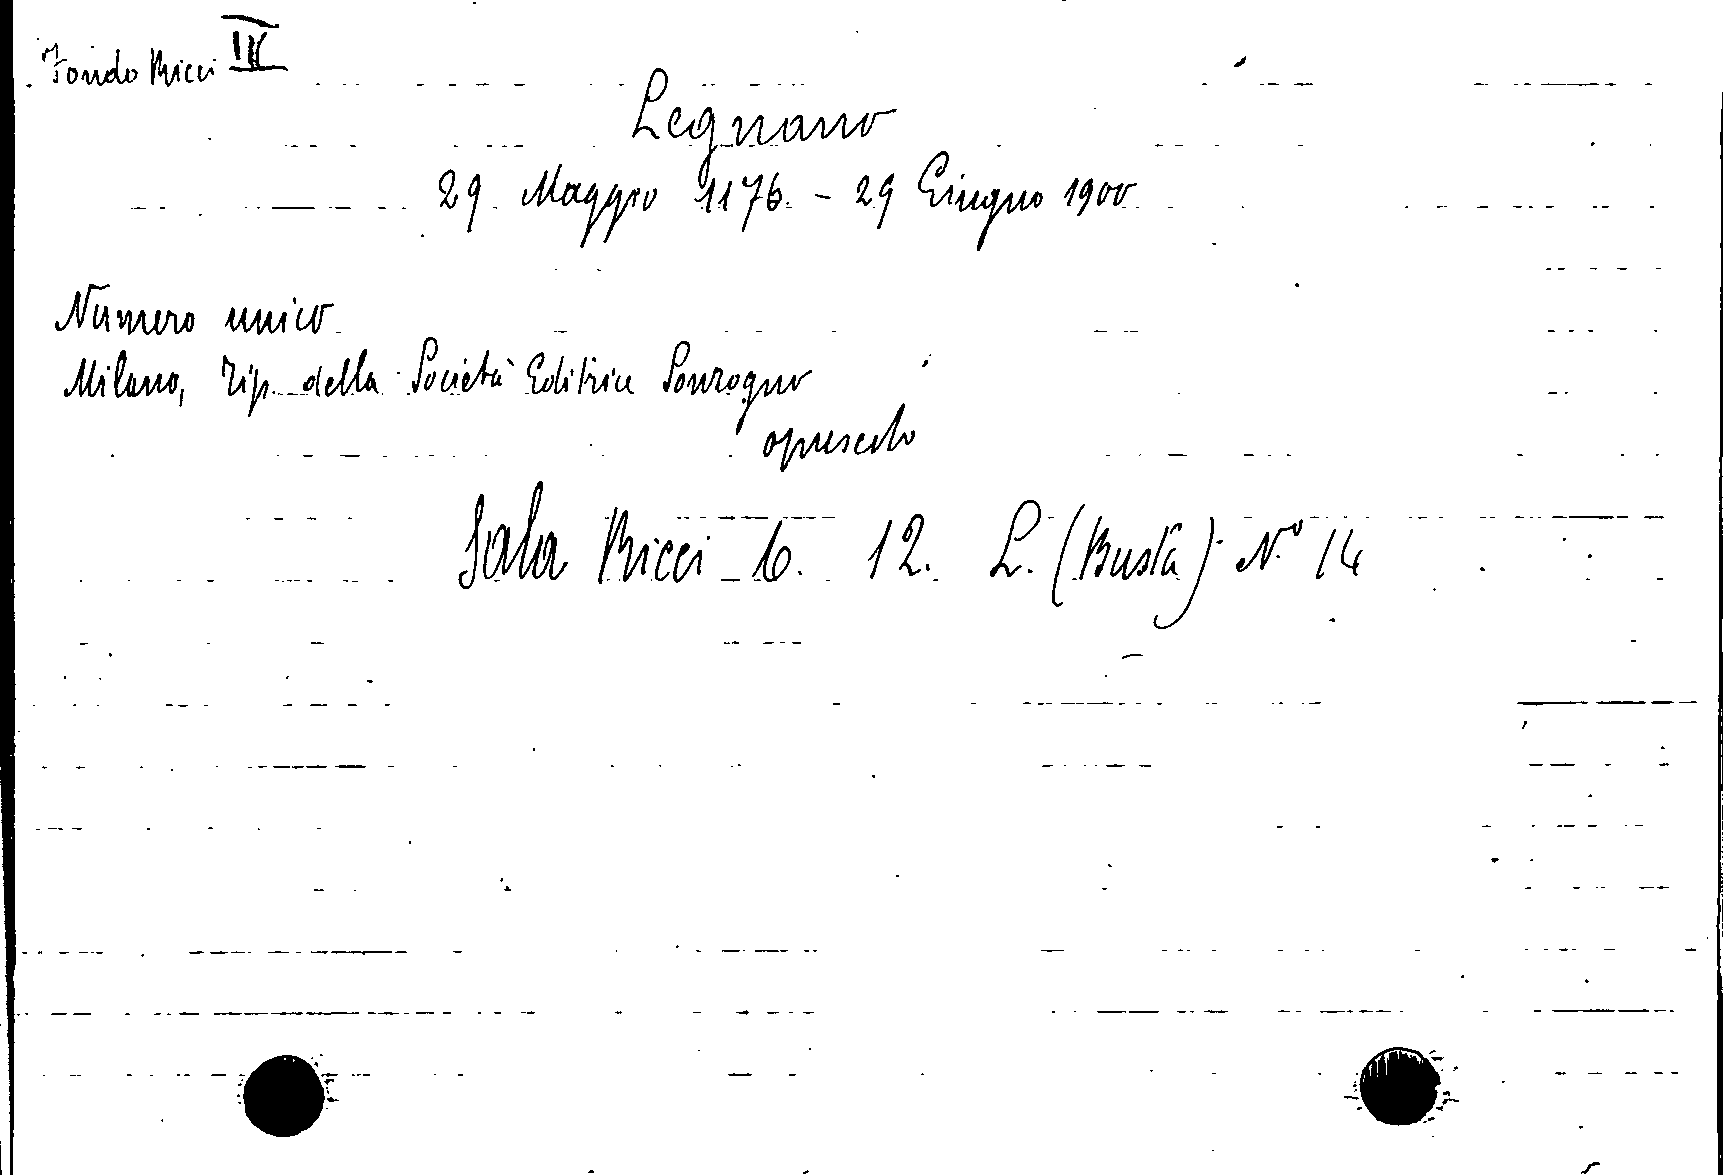 Fondo Ricci IV
Legnano
29 Maggio 1176 - 29 Giugno 1900
Numero unico
Milano, Tip. della Società Editrice Sonzogno
opuscolo
Sala Ricci 6. 12. L. (Busta) N.º 14